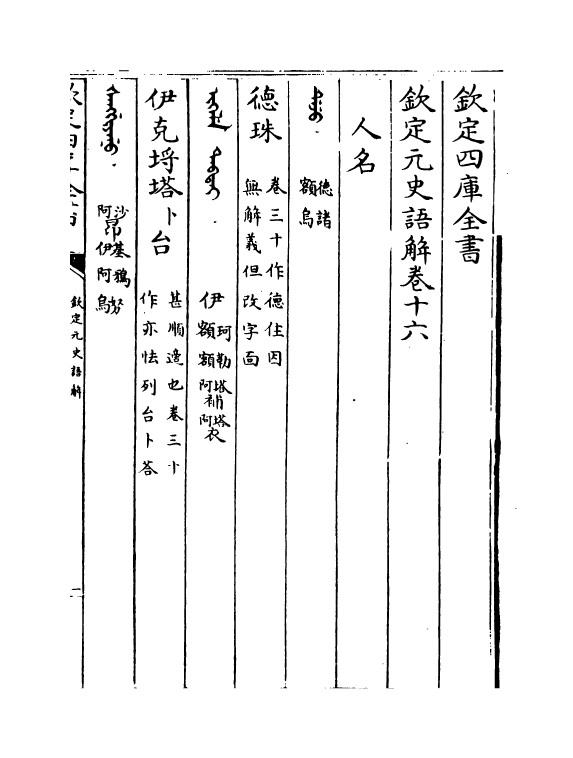 欽定四庫全書
欽定元史語解卷十六
人名
德諸
額烏
德珠
卷三十作德住因
無解義但改字面
伊珂額勒額塔阿補塔阿衣
伊克埒塔卜台
甚順適也卷三十
作亦怯列台卜荅
沙阿昂基伊鴉阿努烏
欽定四庫全書
欽定元史語解
一